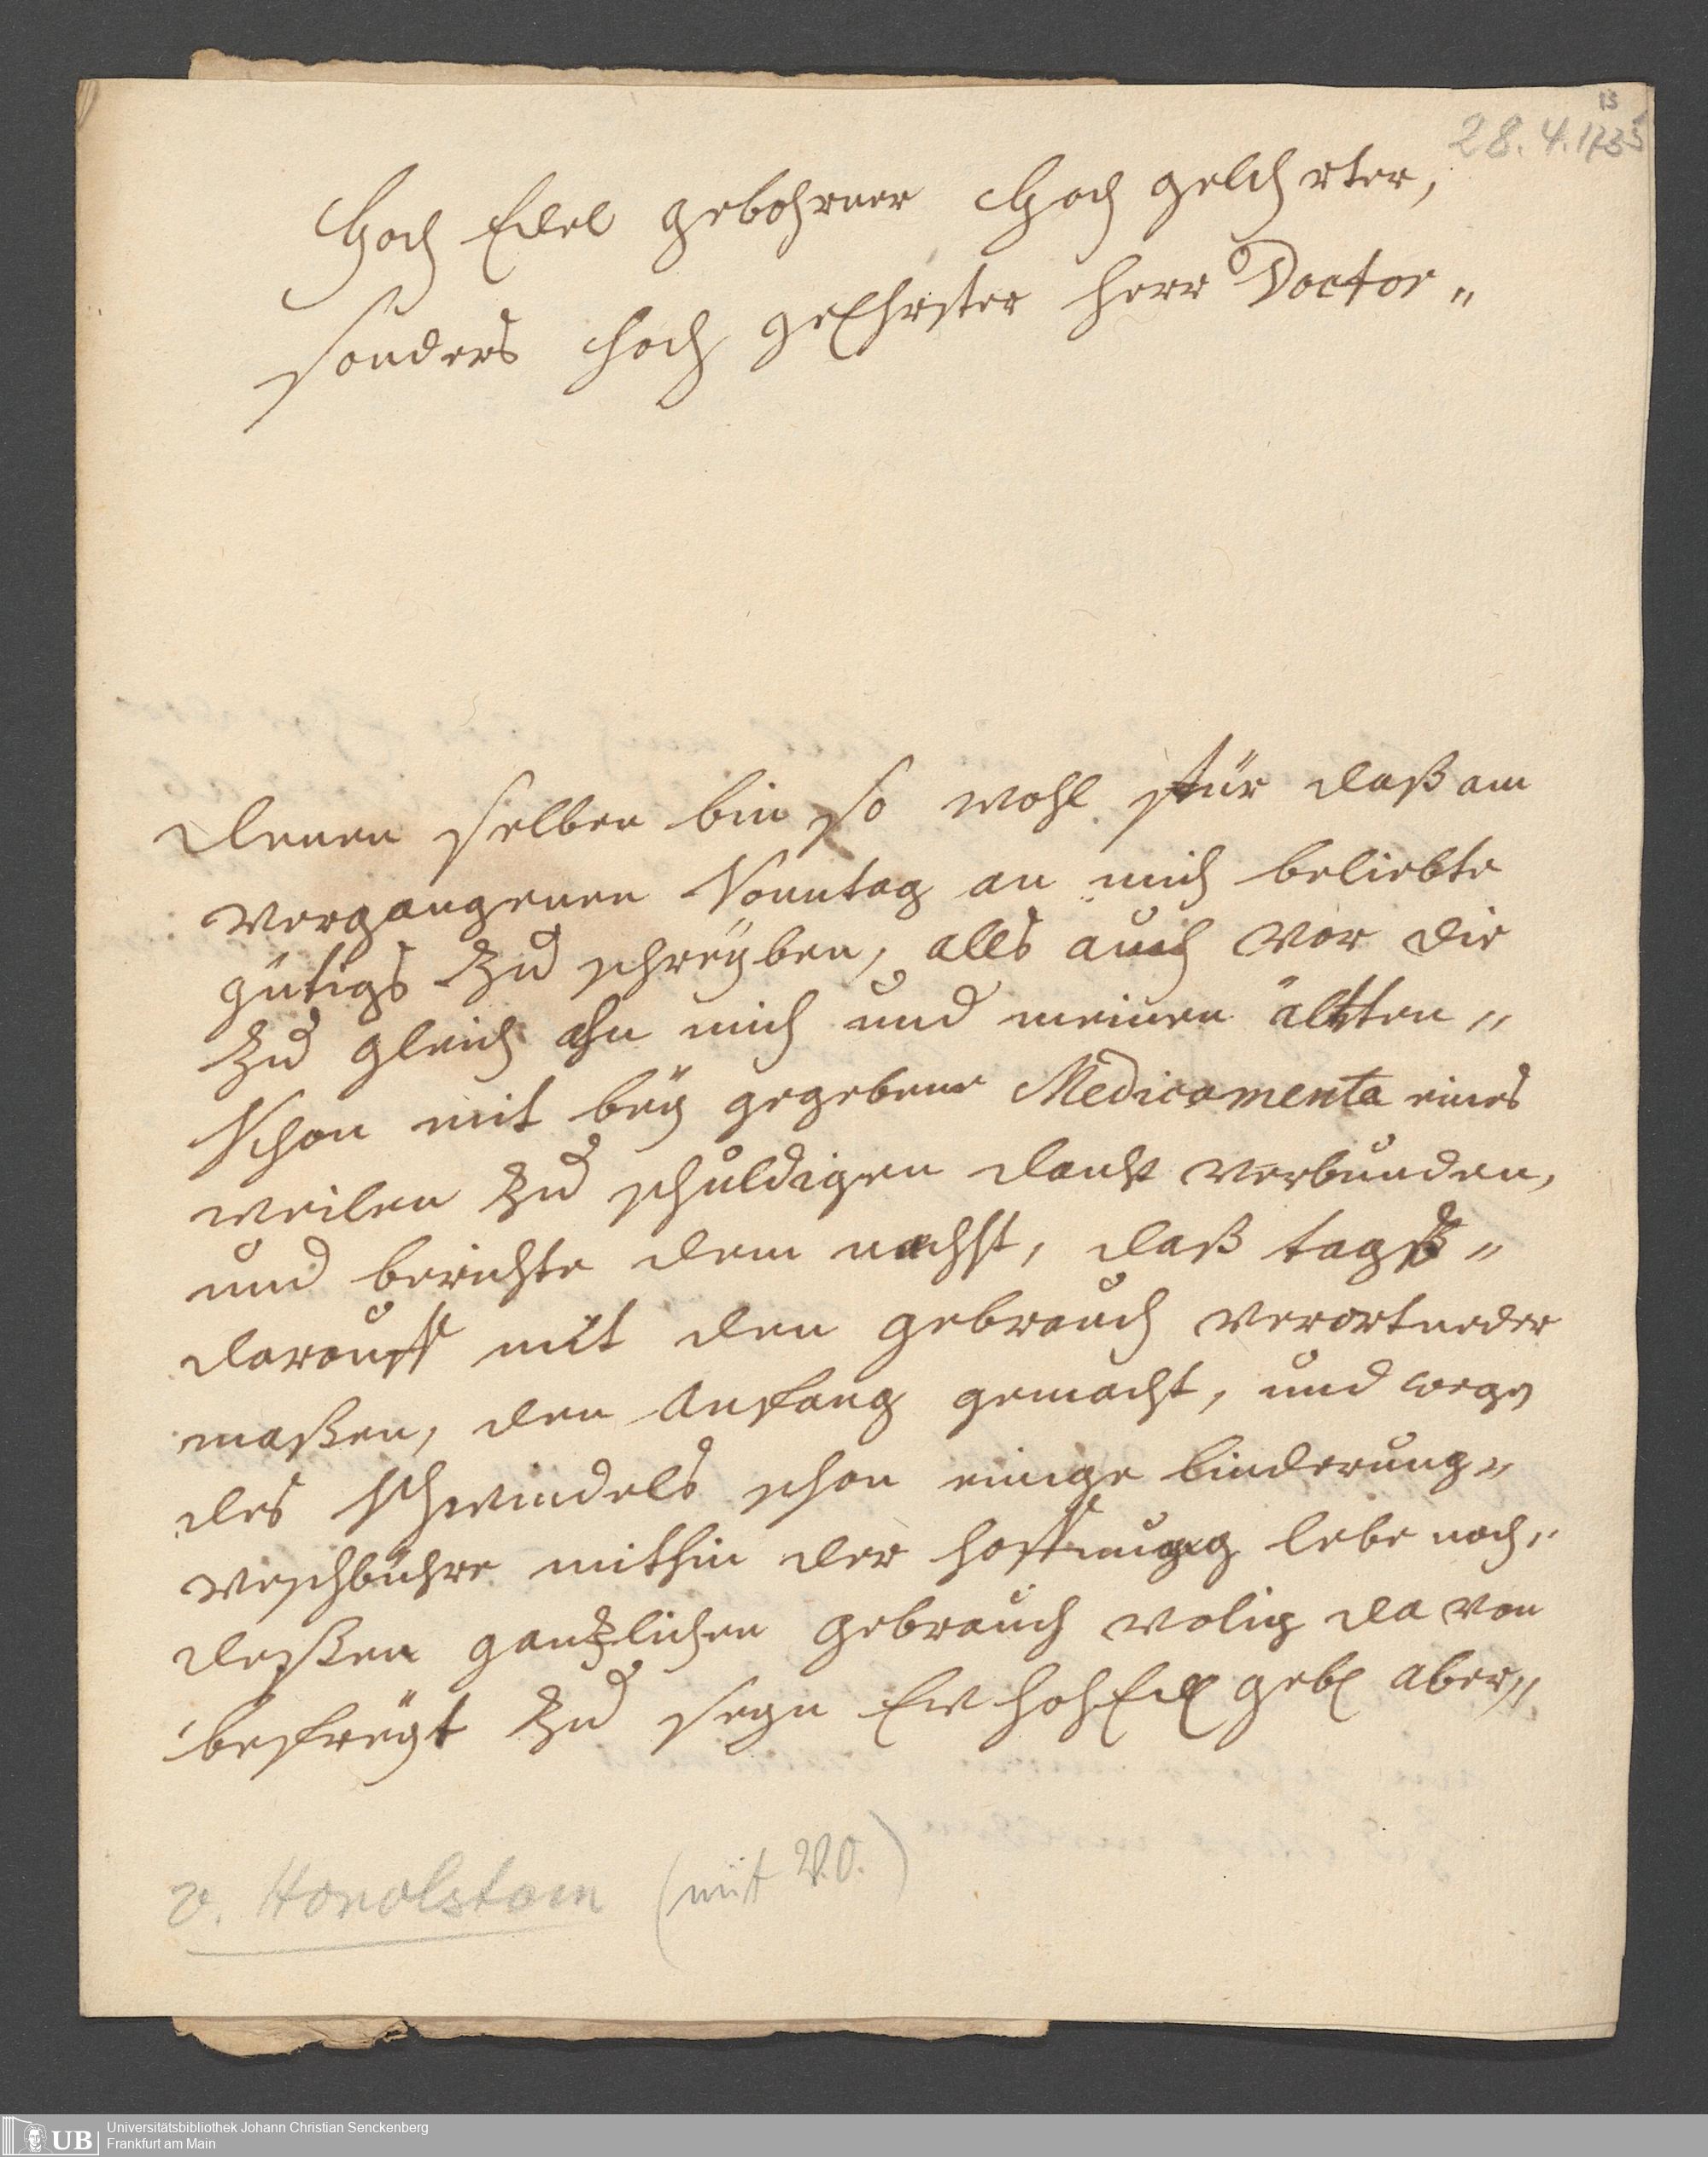 13
28.4.1735
Hoch Edel gebohrner Hoch gelehrter,
sonders hoch geEhrster Herr Doctor"
denen selben bin so wohl für daß am
vergangenen Sonntag an mich beliebte
gütigs zu schreyben, alls auch vor die
zu gleich ahn mich und meinen ältten"
Sohn mit beÿ gegebene Medicamenta eines
weilen zu schuldigen danck verbunden,
und berichte dem nechst, daß tags"
darauff mit den gebrauch verortneder
maßen, den anfang gemacht, und wegen
des Schwindels schon einige linderung"
verspühre mithin der hoffnung lebe nach"
deßen gantzlichen gebrauch volig da von
befreÿt zu seyn Ew HohEdl gebl aber"
v. Hanolstam (mit V.O.)
UB Universitätsbibliothek Johann Christian Senckenberg
Frankfurt am Main